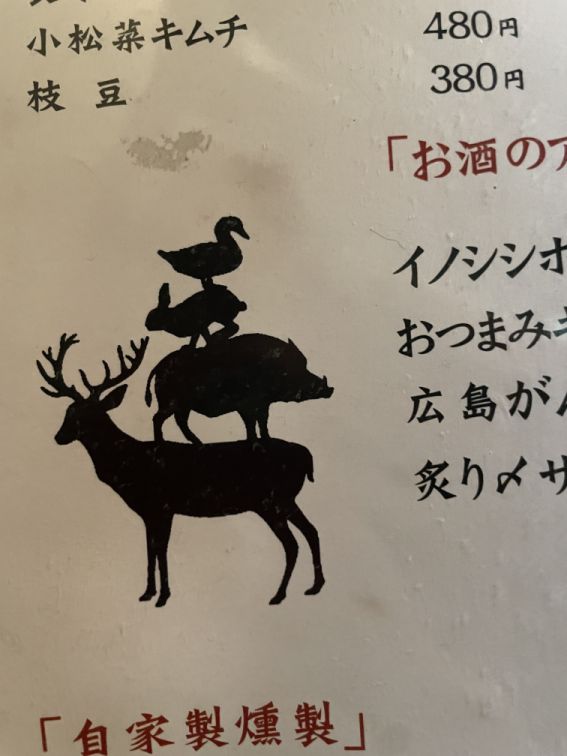 小松菜キムチ 480円
枝豆 380円
「お酒のア
イノシシホ
おつまみキ
広島が
炙り〆サ
「自家製燻製」